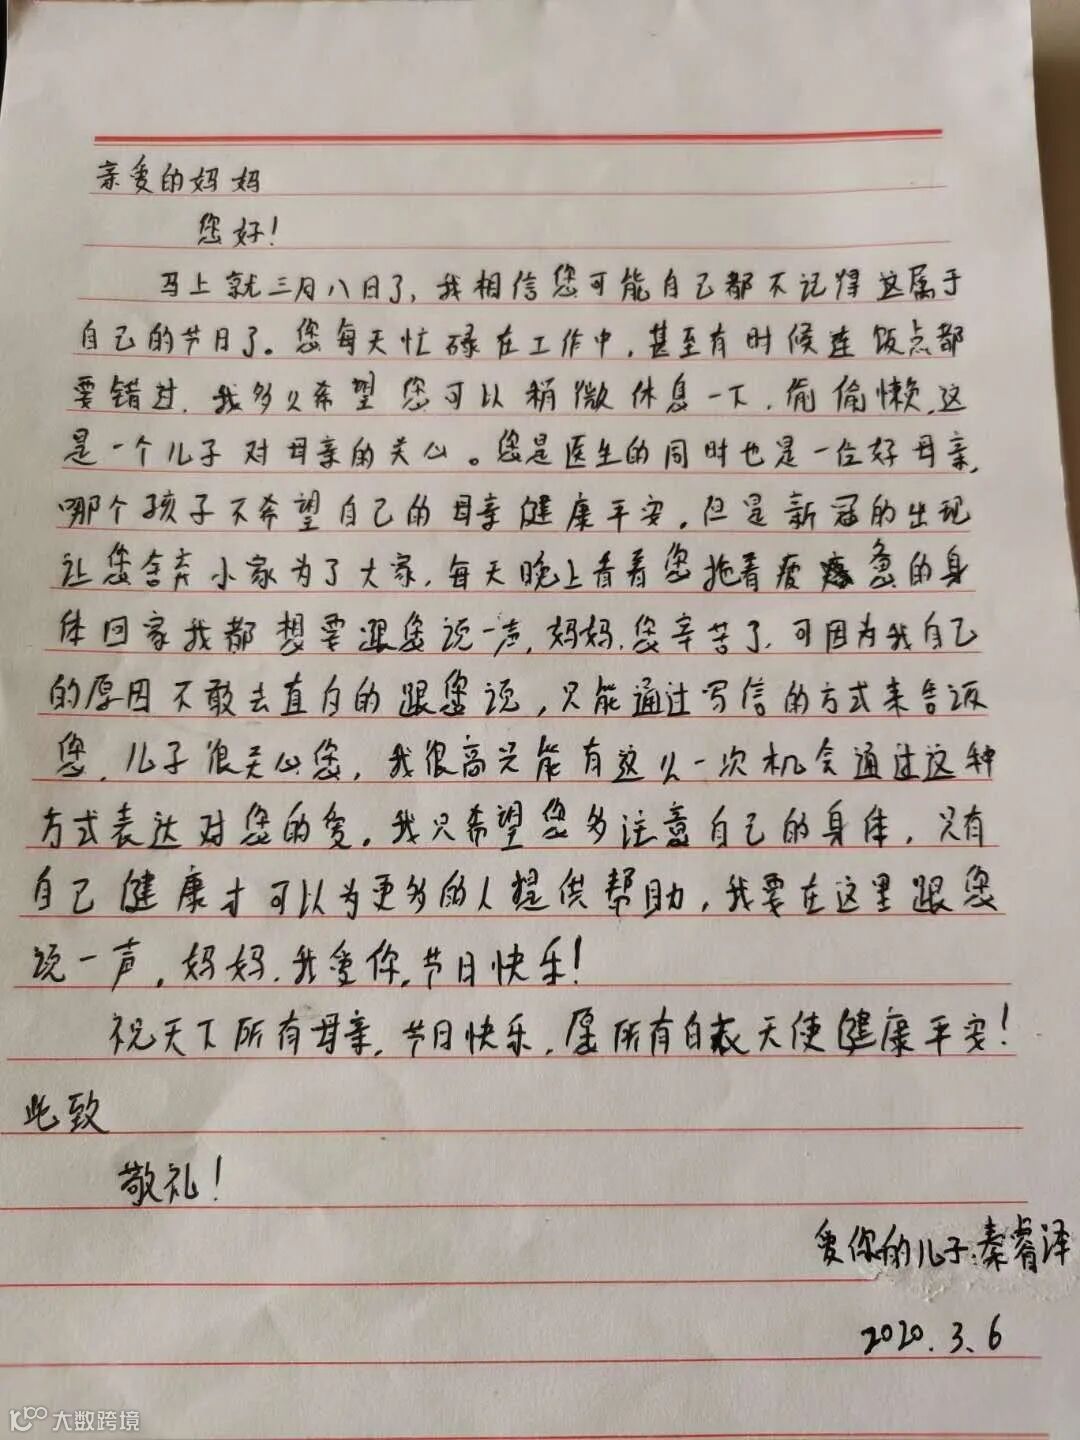 亲爱的妈妈
您好!
马上就三月八日了,我相信您可能自己都不记得这属于
自己的节日了。您每天忙碌在工作中,甚至有时候连饭点都
要错过,我多么希望您可以稍微休息一下,偷偷懒,这
是一个儿子对母亲的关心。您是医生的同时也是一位好母亲,
哪个孩子不希望自己的母亲健康平安,但是新冠的出现
让您舍弃小家为了大家,每天晚上看着您拖着疲惫的身
体回家我都想要跟您说一声,妈妈,您辛苦了,可因为我自己
的原因不敢去直白的跟您说,只能通过写信的方式来告诉
您,儿子很关心您,我很高兴能有这么一次机会通过这种
方式表达对您的爱。我只希望您多注意自己的身体,只有
自己健康才可以为更多的人提供帮助,我要在这里跟您
说一声,妈妈,我爱你,节日快乐!
祝天下所有母亲,节日快乐,愿所有白衣天使健康平安!
此致
敬礼!
爱你的儿子:秦睿泽
2020.3.6
大数跨境